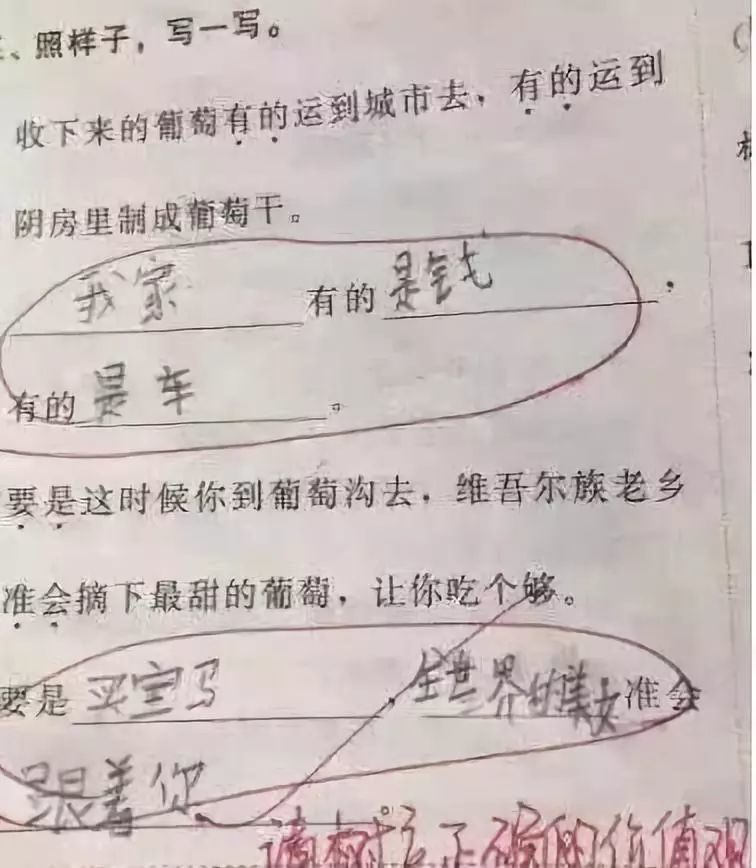 、照样子，写一写。
收下来的葡萄有的运到城市去，有的运到
阴房里制成葡萄干。
我家有的是钱，
有的是车。
要是这时候你到葡萄沟去，维吾尔族老乡
准会摘下最甜的葡萄，让你吃个够。
要是买宝马，全世界的美女准会
跟着你。
请树立正确的价值观